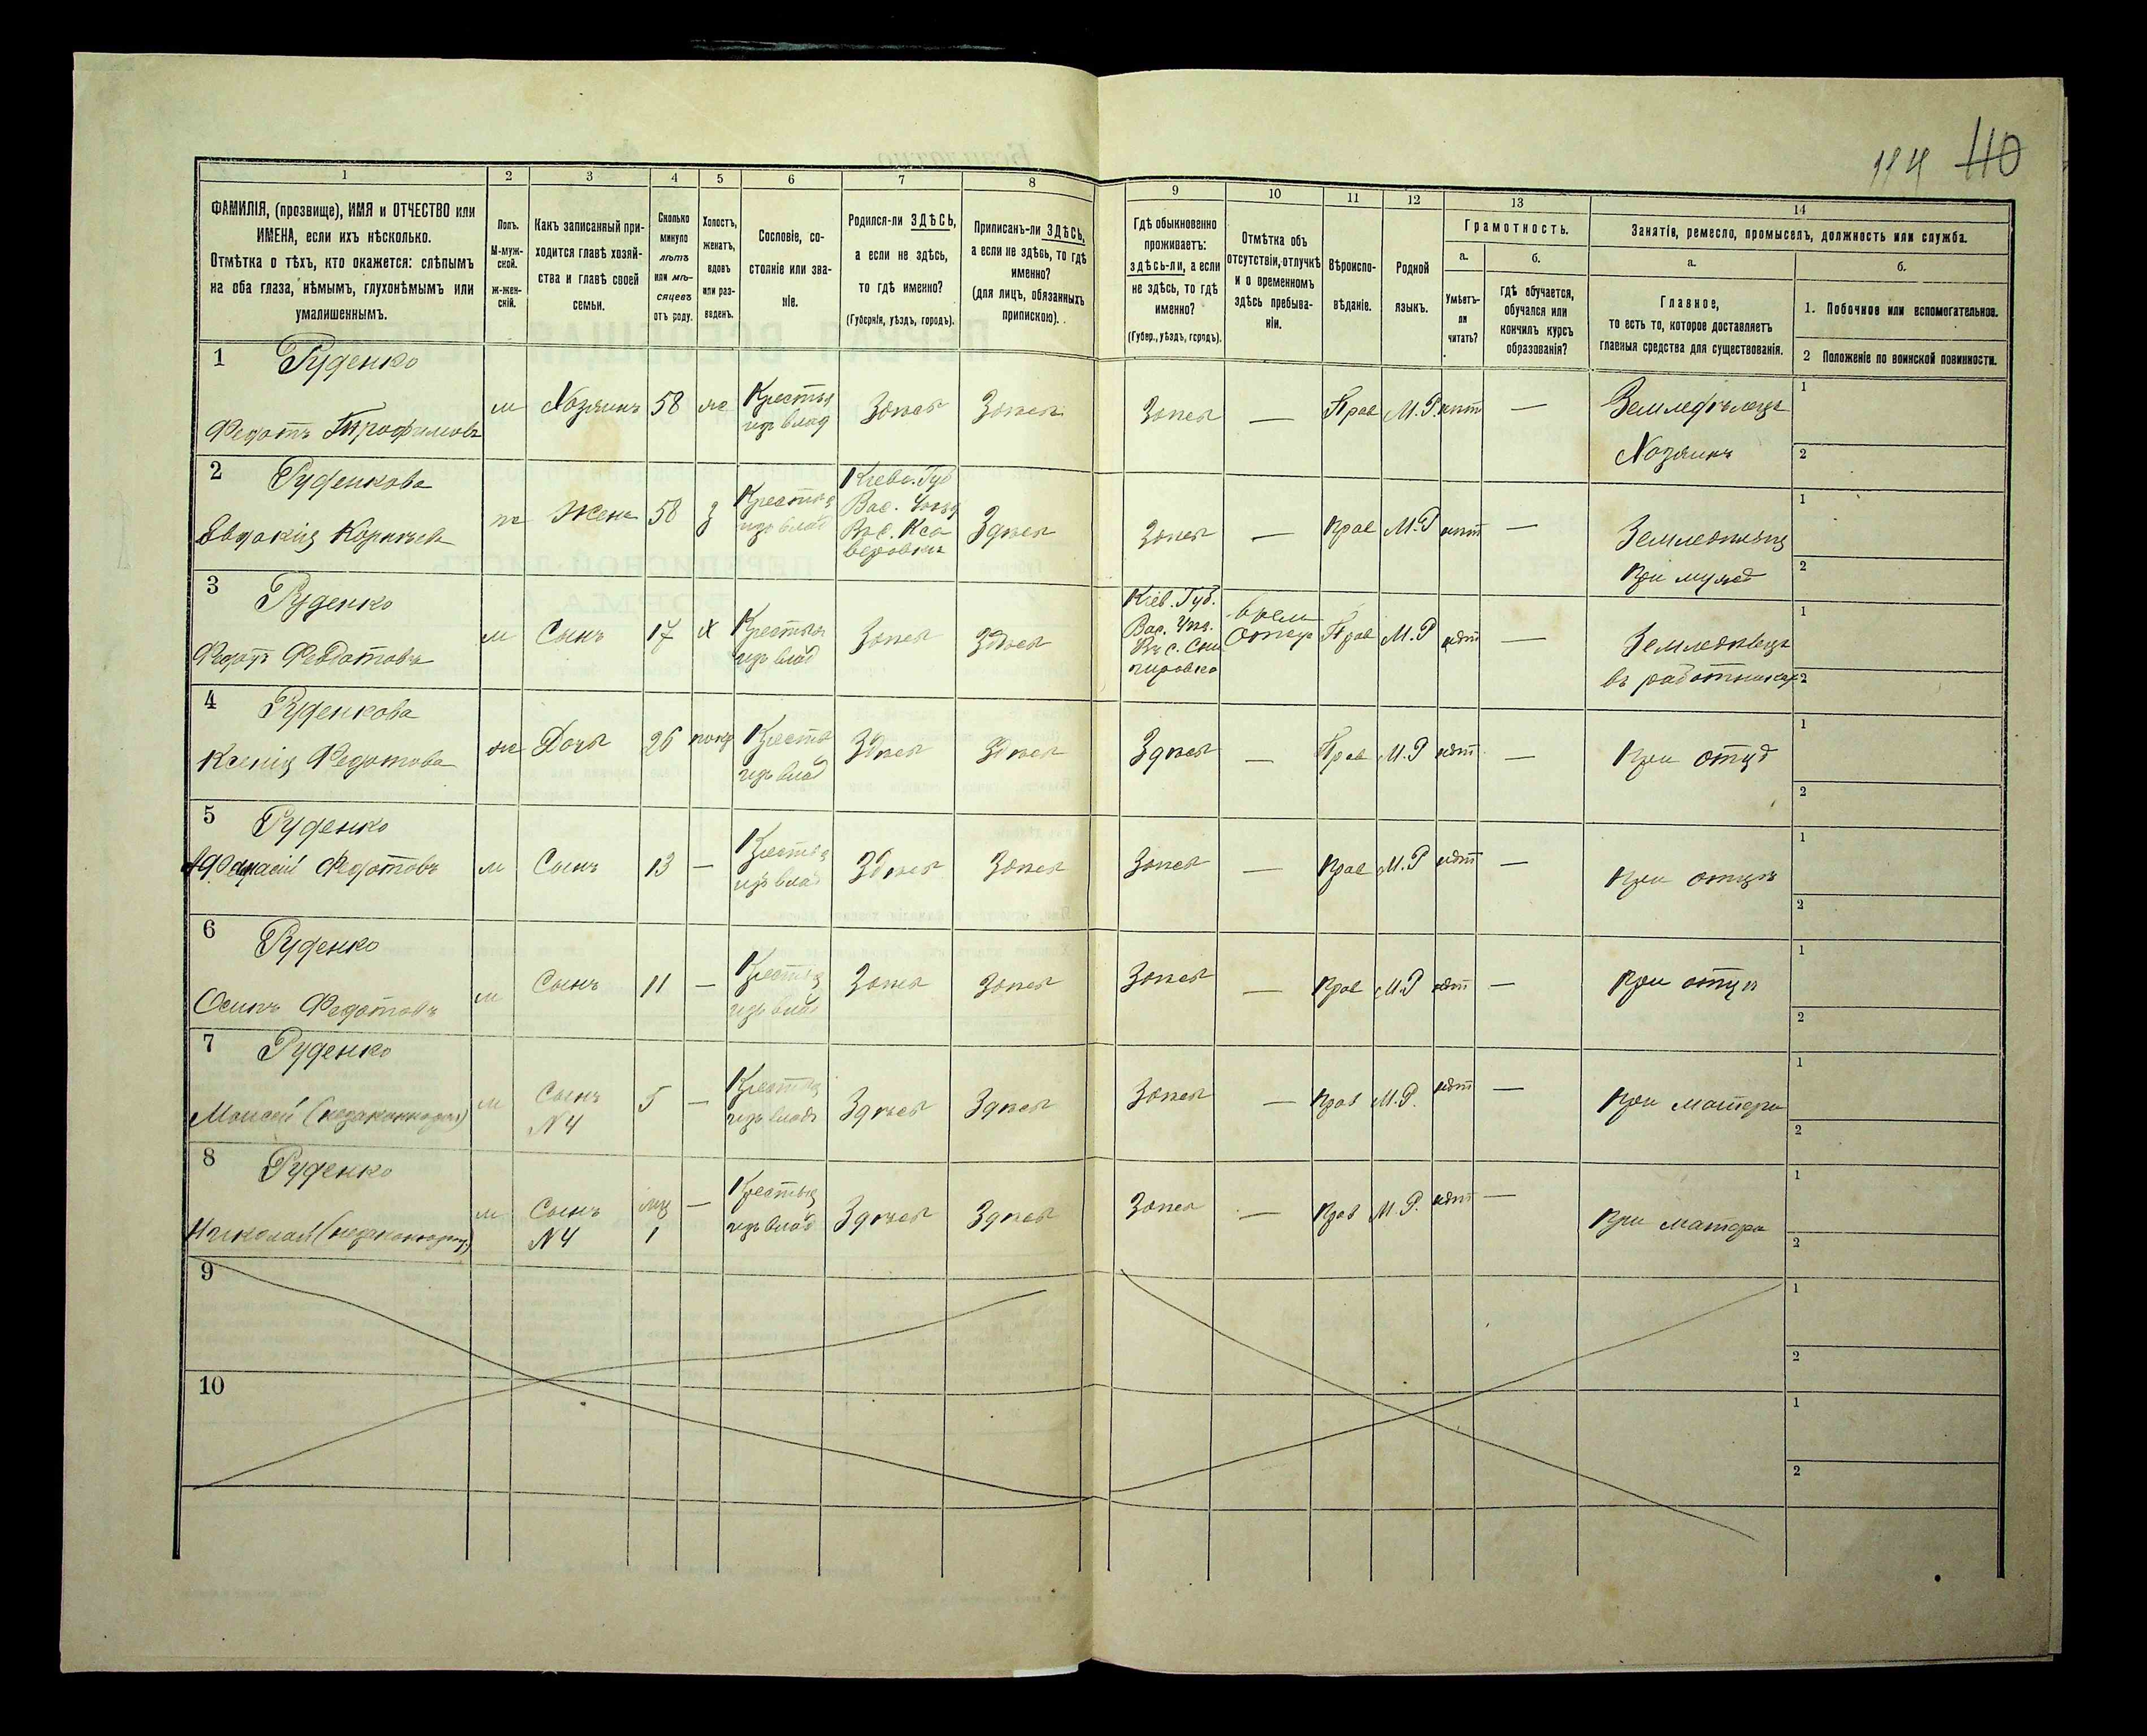 114 40
1 2 3 4 5 6 7 8 9 10 11 12 13 14
ФАМИЛІЯ, (прозвище), ИМЯ и ОТЧЕСТВО или
ИМЕНА, если ихъ нѣсколько.
Отмѣтка о тѣхъ, кто окажется: слѣпымъ
на оба глаза, нѣмымъ, глухонѣмымъ или
умалишеннымъ.
Полъ.
М-муж-
ской.
Ж-жен-
скій.
Какъ записанный при-
ходится главѣ хозяй-
ства и главѣ своей
семьи.
Сколько
минуло
лѣтъ
или мѣ-
сяцевъ
отъ роду.
Холостъ,
женатъ,
вдовъ
или раз-
веденъ.
Сословіе, со-
стояніе или зва-
ніе.
Родился-ли ЗДѢСЬ,
а если не здѣсь,
то гдѣ именно?
(Губернія, уѣздъ, городъ).
Приписанъ-ли ЗДѢСЬ,
а если не здѣсь, то гдѣ
именно?
(для лицъ, обязанныхъ
припискою).
Гдѣ обыкновенно
проживаетъ:
здѣсь-ли, а если
не здѣсь, то гдѣ
именно?
(Губер., уѣздъ, городъ).
Отмѣтка объ
отсутствіи, отлучкѣ
и о временномъ
здѣсь пребыва-
ніи.
Вѣроиспо-
вѣданіе.
Родной
языкъ.
Грамотность.
а.
Умѣетъ-
ли
читать?
б.
гдѣ обучается,
обучался или
кончилъ курсъ
образованія?
Занятіе, ремесло, промыселъ, должность или служба.
а.
Главное,
то есть то, которое доставляетъ
главныя средства для существованія.
б.
1. Побочное или вспомогательное.
2 Положеніе по воинской повинности.
1 Руденко
Федотъ Трофимовъ
м Хозяинъ 58 ж Крестья изъ влад Здѣсь Здѣсь Здѣсь — Прав М.Р. нѣт — Земледѣлецъ
Хозяинъ
1
2
2 Руденкова
Евдокія Корнѣев
ж Жена 58 з Крестья изъ влад
Кіевс. Губ
Вас. Уѣзд
Въ с. Кса
веровки
Здѣсь Здѣсь — Прав М.Р нѣт — Земледѣлец
При мужѣ
1
2
3 Руденко
Федотъ Федотовъ
м Сынъ 17 х Крестья изъ влад Здѣсь Здѣсь
Кіев. Губ.
Вас. Уѣз.
Въ с.
врем
Отлуч
Прав М.Р нѣт — Земледѣлецъ
въ работникахъ
1
2
4 Руденкова
Ксенія Федотова
ж Дочь 26 Крестья изъ влад Здѣсь Здѣсь Здѣсь — Прав М.Р нѣт — При отцѣ
1
2
5 Руденко
Афанасій Федотовъ
м Сынъ 13 — Крестья изъ влад Здѣсь Здѣсь Здѣсь — Прав М.Р нѣт — При отцѣ
1
2
6 Руденко
Осипъ Федотовъ
м Сынъ 11 — Крестья изъ влад Здѣсь Здѣсь Здѣсь — Прав М.Р нѣт — При отцѣ
1
2
7 Руденко
Моисей (незаконнорож)
м Сынъ N 4 5 — Крестья изъ влад Здѣсь Здѣсь Здѣсь — Прав М.Р. нѣт — При матери
1
2
8 Руденко
Николай (незаконнорож)
м Сынъ N 4 мц 1 — Крестья изъ влад Здѣсь Здѣсь Здѣсь — Прав М.Р. нѣт — При матери
1
2
9
1
2
10
1
2